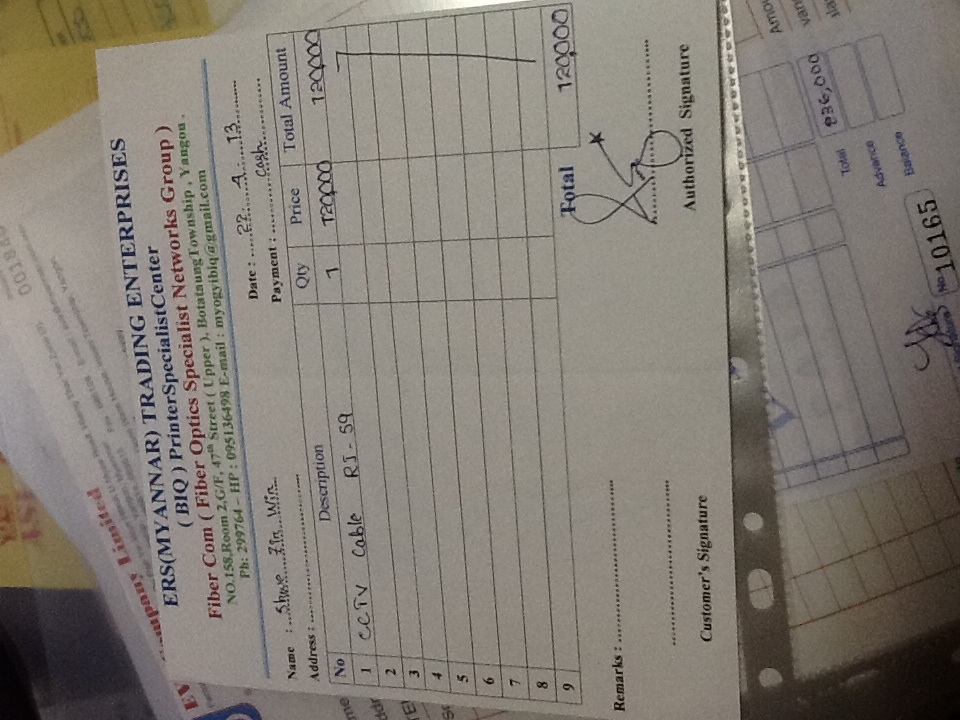 001840
Company Limited
ERS(MYANNAR) TRADING ENTERPRISES
( BIQ ) PrinterSpecialistCenter
Fiber Com ( Fiber Optics Specialist Networks Group )
NO.158,Room 2,G/F, 47th Street ( Upper ), BotataungTownship , Yangon .
Ph: 299764 – HP : 095136498 E-mail : myogyibiq@gmail.com
Name : Shwe Zin Win Date : 22. 4. 13
Address : Payment : cash
No Description Qty Price Total Amount
1 CCTV Cable RJ-59 1 120,000 120,000
2
3
4
5
6
7
8
9
Total 120,000
Remarks :
Customer's Signature Authorized Signature
Total 836,000
Advance
Balance
Signature No. 10165